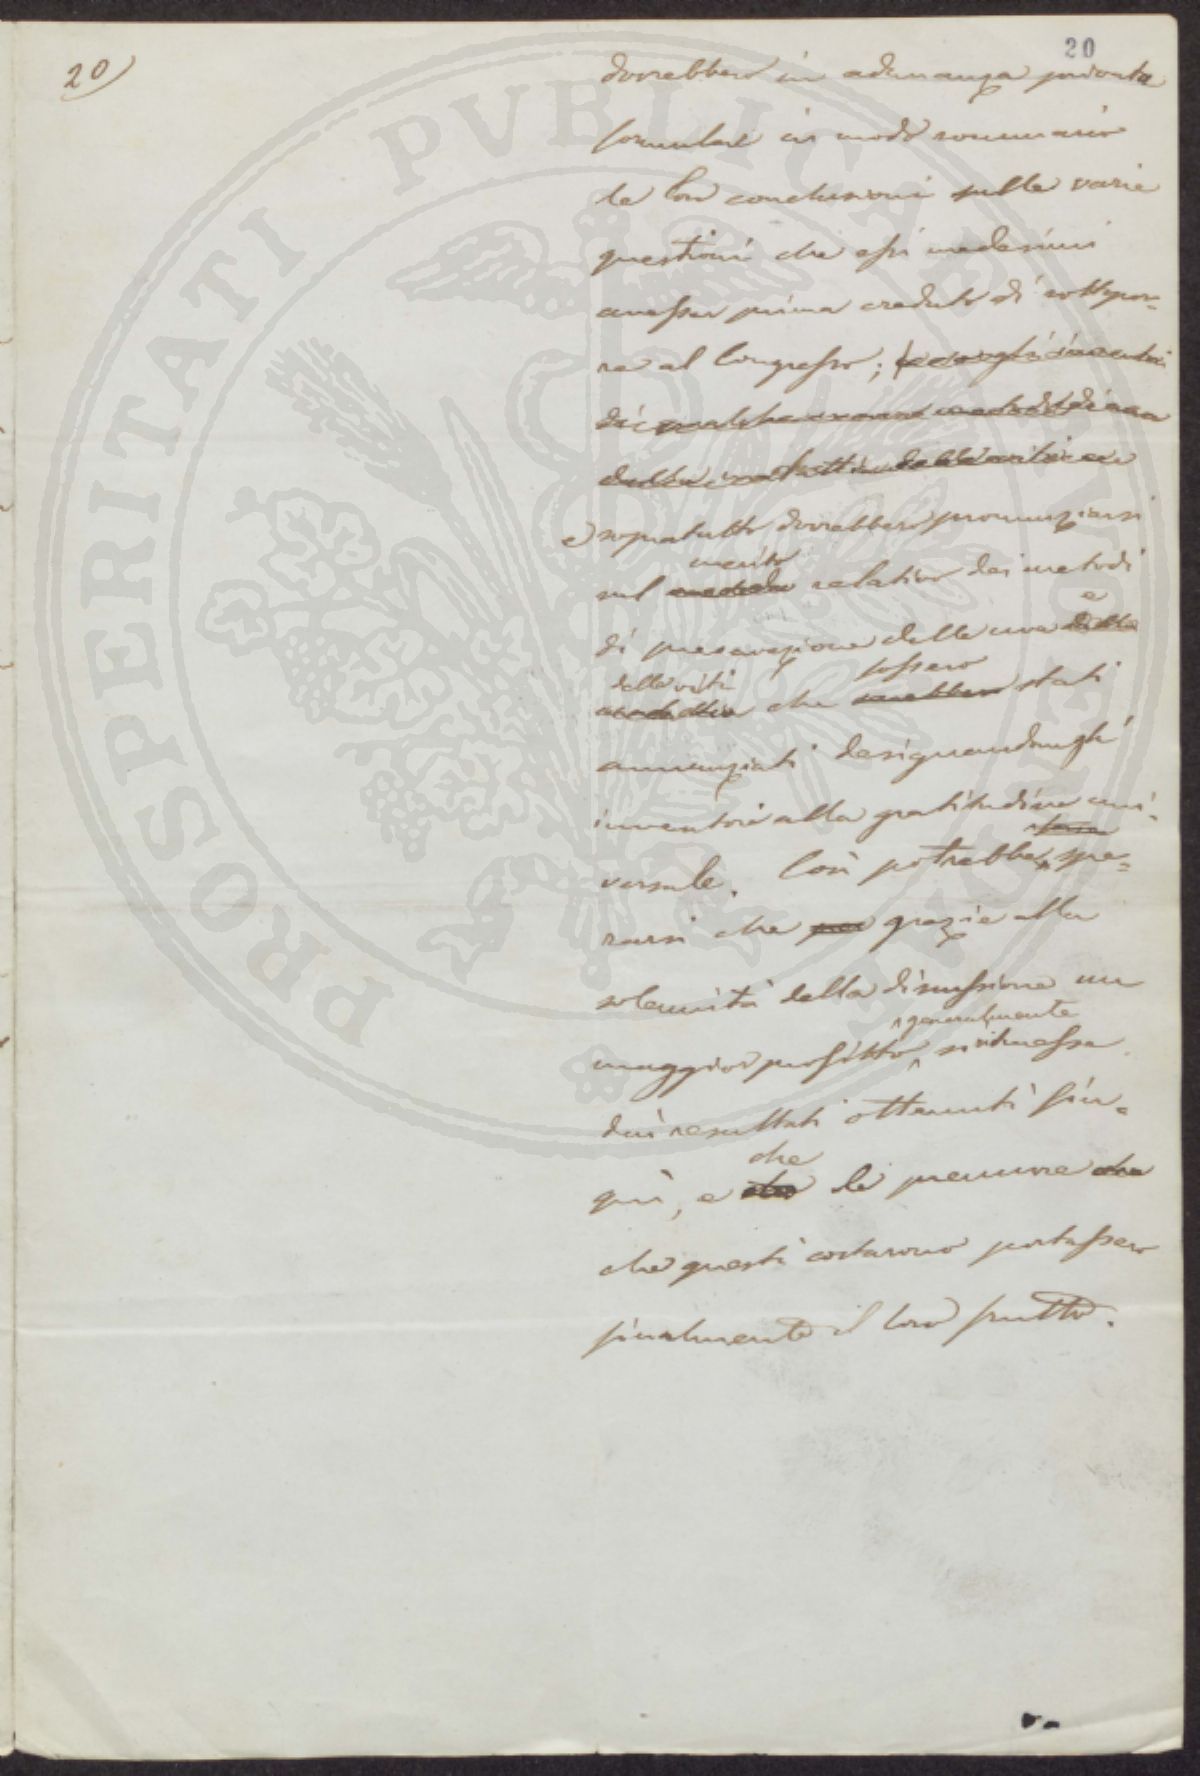 20)
20
dovrebbero in adunanza privata
formulare in modo sommario
le loro conclusioni sulle varie
questioni che essi medesimi
avesser prima creduto di sottopor-
re al Congresso;
e sopratutto dovrebbero pronunziarsi
merito
sul relativo dei metodi
e
di preservazione delle uva della
delle viti fossero
che sarebbero stati
annunziati designandone gli
inventori alla gratitudine uni-
versale. Così potrebbe spe-
rarsi che per grazie alla
solennità della discussione un
generalmente
maggior profitto si ritraesse
dai resultati ottenuti fin-
che
quì, e che le premure che
che questi costarono portassero
finalmente il loro frutto.
PROSPERITATI PVBLICAE